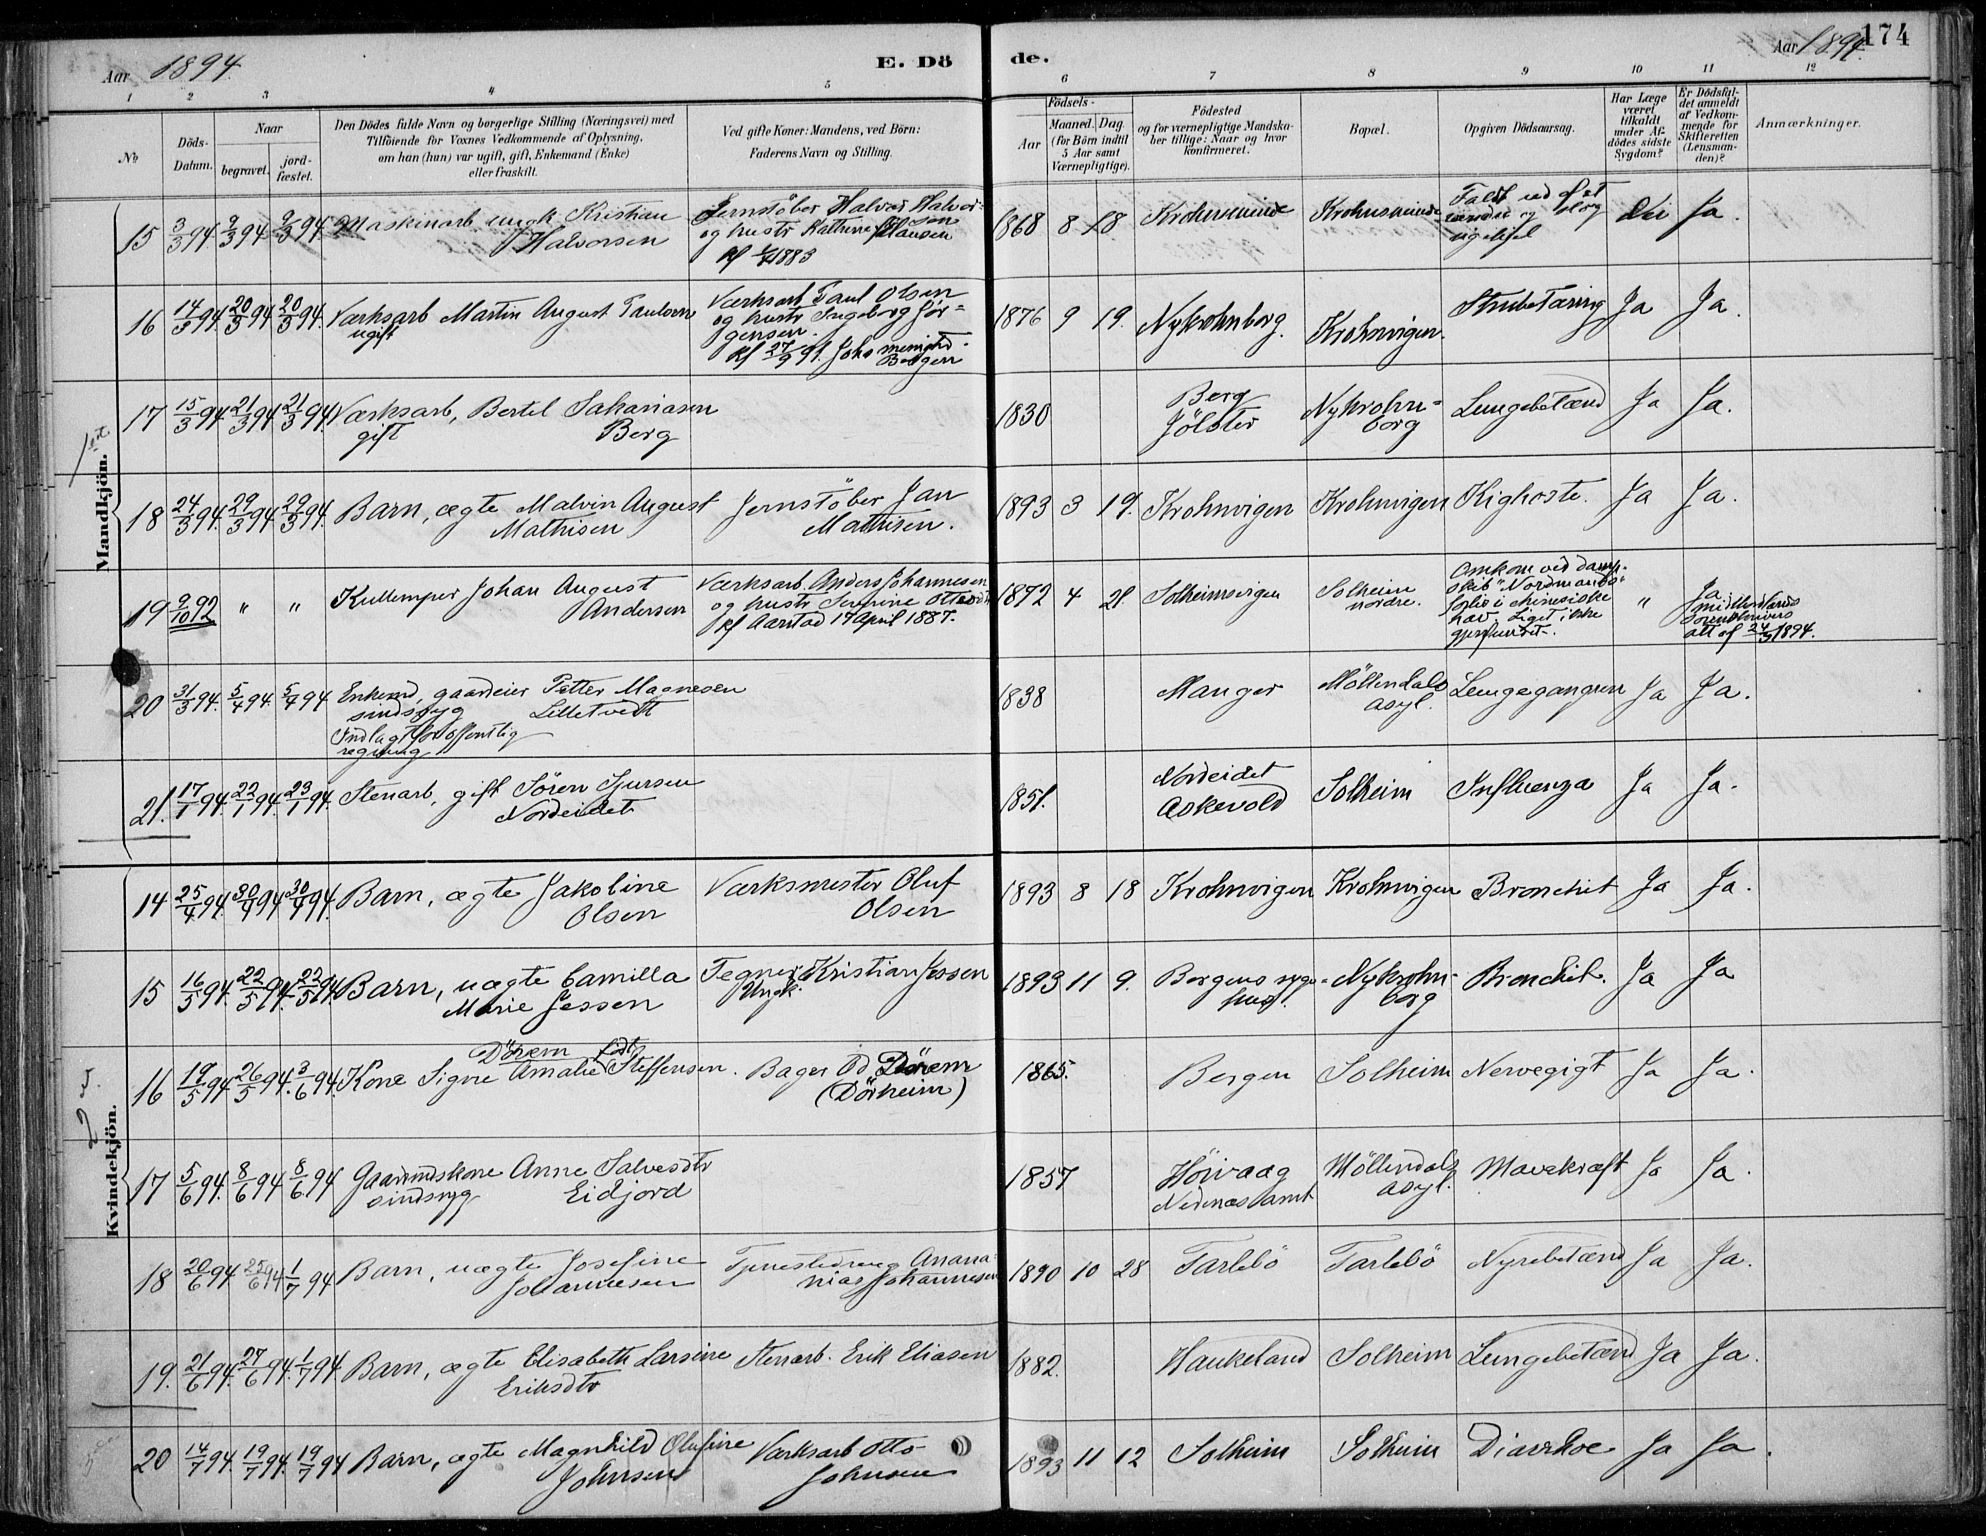 Aar 1894.
E. Dö
de.
Aar 1894.
174
1 2 3 4 5 6 7 8 9 10 11 12
No
Döds-Datum.
Naar
begravet.
jord-fæstet.
Den Dödes fulde Navn og borgerlige Stilling (Næringsvei) med
Tilföiende for Voxnes Vedkommende af Oplysning,
om han (hun) var ugift, gift, Enkemand (Enke)
eller fraskilt.
Ved gifte Koner: Mandens, ved Börn:
Faderens Navn og Stilling.
Födsels-
Aar
Maaned. Dag
(for Börn indtil
5 Aar samt
Værnepligtige).
Födested
og for værnepligtige Mandska-
ber tillige: Naar og hvor
konfirmeret.
Bopæl.
Opgiven Dödsaarsag.
Har Læge
været
tilkaldt
under Af-
dödes sidste
Sygdom?
Er Dödsfal-
det anmeldt
af Vedkom-
mende for
Skifteretten
(Lensman-
den)?
Anmærkninger.
Mandkjön.
15 3/3 94 9/3 94 9/3 94. Maskinarb ungk Kristian Halvorsen Jernstöber Halvor Halvorsen og hustr Kathrine Clausen Kf 1883 1868 8 18 Krohnsminde Krohnsminde Faldt ned Nei Ja.
16 14/3 94. 20/3 94. 20/3 94. Værksarb Martin August Paulsen ugift Værksarb Paul Olsen og hustr Ingeborg Jörgensen. Kf 27/9 91. Johs menighd Bergen 1876 9 19. Nykrohnborg. Krohnvigen. Strubetæring Ja Ja.
17 15/3 94 21/3 94 21/3 94. Værksarb, Bertel Sakariasen Berg gift 1830 Berg Jölster Nykrohnborg Lungebetænd Ja Ja.
18 24/3 94. 29/3 94 29/3 94. Barn, ægte Malvin August Mathisen Jernstöber Jan Mathisen. 1893 3 19. Krohnvigen Krohnvigen Kighoste. Ja Ja.
19 9/10 92 " " Kullemper Johan August Andersen Værksarb Anders Johannesen og hustr Serine Ottesdt Kf Aarstad 17 April 1887. 1872 4 21. Solheimsvigen Solheim nordre. Omkom ved dampskib "Nordmands" forlis i chinesiske hav. Liget ikke gjenfundet. " Ja att af 24/3 1894.
20 31/3 94. 5/4 94. 5/4 94 Enkemd, gaardeier Petter Magnesen Lilletvedt sindssyg Indlagt for offentlig regning 1838 Manger Möllendals asyl. Lungegangren Ja Ja.
21. 17/1 94. 22/1 94. 23/1 94. Stenarb, gift Sören Sjursen Nordeidet 1851. Nordeidet Askevold Solheim Influenza Ja Ja.
Kvindekjön.
14 25/4 94 30/4 94 30/4 94. Barn, ægte Jakoline Olsen Værksmester Oluf Olsen 1893 8 18 Krohnvigen Krohnvigen Bronchit Ja Ja.
15 16/5 94. 22/5 94. 22/5 94 Barn, uægte Camilla Marie Jessen Tegner Kristian Jessen Ungk. 1893 11 9. Bergens sygehus. Nykrohnborg Bronchit. Ja Ja
16 19/5 94 26/5 94. 3/6 94. Kone Signe Amalie Dörem födt Steffensen. Bager Od. Dörem (Dörheim) 1865. Bergen Solheim Nervegigt Ja Ja.
17 5/6 94. 8/6 94 8/6 94 Gaardmdskone Anne Salvesdtr Eidjord sindssyg 1857 Höivaag Nedenæs amt Möllendals asyl. Mavekræft Ja Ja.
18 20/6 94. 25/6 94 1/7 94 Barn, uægte Josefine Johannesen Tjenestedreng Ananias Johannesen 1890 10 28 Tarlebö Tarlebö Nyrebetænd Ja Ja.
19. 21/6 94. 27/6 94. 1/7 94 Barn, ægte Elisabeth Larsine Eriksdtr Stenarb. Erik Eliasen 1882. Haukeland Solheim Lungebetænd Ja Ja.
20 14/7 94. 19/7 94. 19/7 94 Barn, ægte Magnhild Olufine Johnsen Værksarb Otto Johnsen 1893 11 12 Solheim Solheim Diarrhoe Ja Ja.